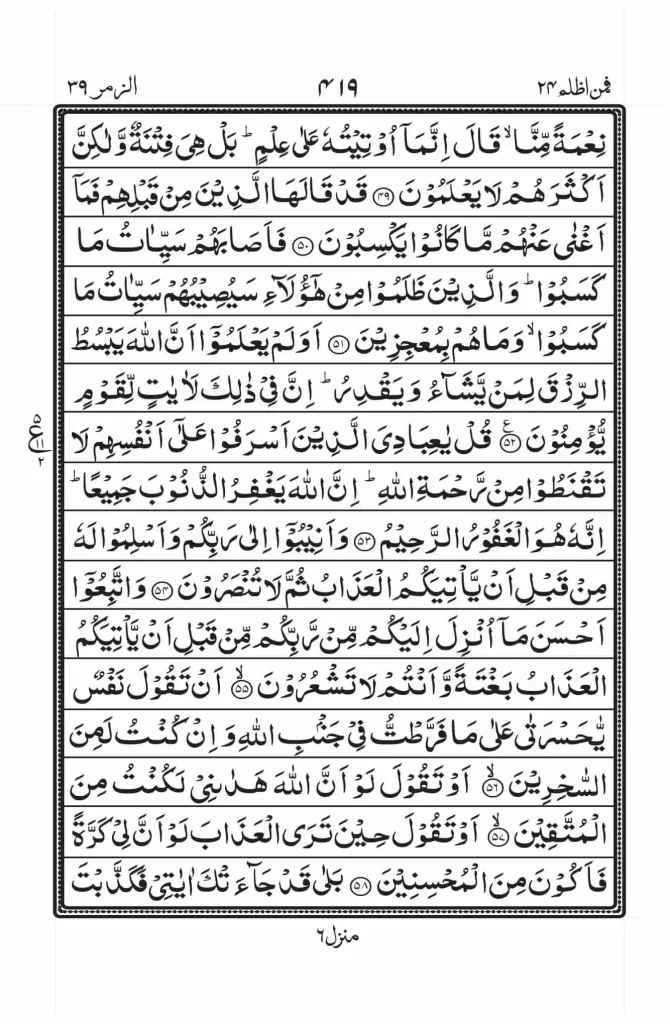 فمن اظلم ۲۴ ۴۱۹ الزمر ۳۹
نِعْمَةً مِّنَّا ۙ قَالَ اِنَّمَاۤ اُوْتِيْتُهٗ عَلٰى عِلْمٍ ؕ بَلْ هِيَ فِتْنَةٌ وَّلٰكِنَّ
اَكْثَرَهُمْ لَا يَعْلَمُوْنَ ﴿۴۹﴾ قَدْ قَالَهَا الَّذِيْنَ مِنْ قَبْلِهِمْ فَمَاۤ
اَغْنٰى عَنْهُمْ مَّا كَانُوْا يَكْسِبُوْنَ ﴿۵۰﴾ فَاَصَابَهُمْ سَيِّاٰتُ مَا
كَسَبُوْا ؕ وَالَّذِيْنَ ظَلَمُوْا مِنْ هٰۤؤُلَآءِ سَيُصِيْبُهُمْ سَيِّاٰتُ مَا
كَسَبُوْا ۙ وَمَا هُمْ بِمُعْجِزِيْنَ ﴿۵۱﴾ اَوَلَمْ يَعْلَمُوْۤا اَنَّ اللّٰهَ يَبْسُطُ
الرِّزْقَ لِمَنْ يَّشَآءُ وَيَقْدِرُ ؕ اِنَّ فِيْ ذٰلِكَ لَاٰيٰتٍ لِّقَوْمٍ
يُّؤْمِنُوْنَ ﴿۵۲﴾ ع قُلْ يٰعِبَادِيَ الَّذِيْنَ اَسْرَفُوْا عَلٰۤى اَنْفُسِهِمْ لَا
۵ ع ۱۱ ۲
تَقْنَطُوْا مِنْ رَّحْمَةِ اللّٰهِ ؕ اِنَّ اللّٰهَ يَغْفِرُ الذُّنُوْبَ جَمِيْعًا ؕ
اِنَّهٗ هُوَ الْغَفُوْرُ الرَّحِيْمُ ﴿۵۳﴾ وَاَنِيْبُوْۤا اِلٰى رَبِّكُمْ وَاَسْلِمُوْا لَهٗ
مِنْ قَبْلِ اَنْ يَّاْتِيَكُمُ الْعَذَابُ ثُمَّ لَا تُنْصَرُوْنَ ﴿۵۴﴾ وَاتَّبِعُوْۤا
اَحْسَنَ مَاۤ اُنْزِلَ اِلَيْكُمْ مِّنْ رَّبِّكُمْ مِّنْ قَبْلِ اَنْ يَّاْتِيَكُمُ
الْعَذَابُ بَغْتَةً وَّاَنْتُمْ لَا تَشْعُرُوْنَ ﴿۵۵﴾ ۙ اَنْ تَقُوْلَ نَفْسٌ
يّٰحَسْرَتٰى عَلٰى مَا فَرَّطْتُّ فِيْ جَنْۢبِ اللّٰهِ وَاِنْ كُنْتُ لَمِنَ
السّٰخِرِيْنَ ﴿۵۶﴾ ۙ اَوْ تَقُوْلَ لَوْ اَنَّ اللّٰهَ هَدٰىنِيْ لَكُنْتُ مِنَ
الْمُتَّقِيْنَ ﴿۵۷﴾ ۙ اَوْ تَقُوْلَ حِيْنَ تَرَى الْعَذَابَ لَوْ اَنَّ لِيْ كَرَّةً
فَاَكُوْنَ مِنَ الْمُحْسِنِيْنَ ﴿۵۸﴾ بَلٰى قَدْ جَآءَتْكَ اٰيٰتِيْ فَكَذَّبْتَ
منزل ۶